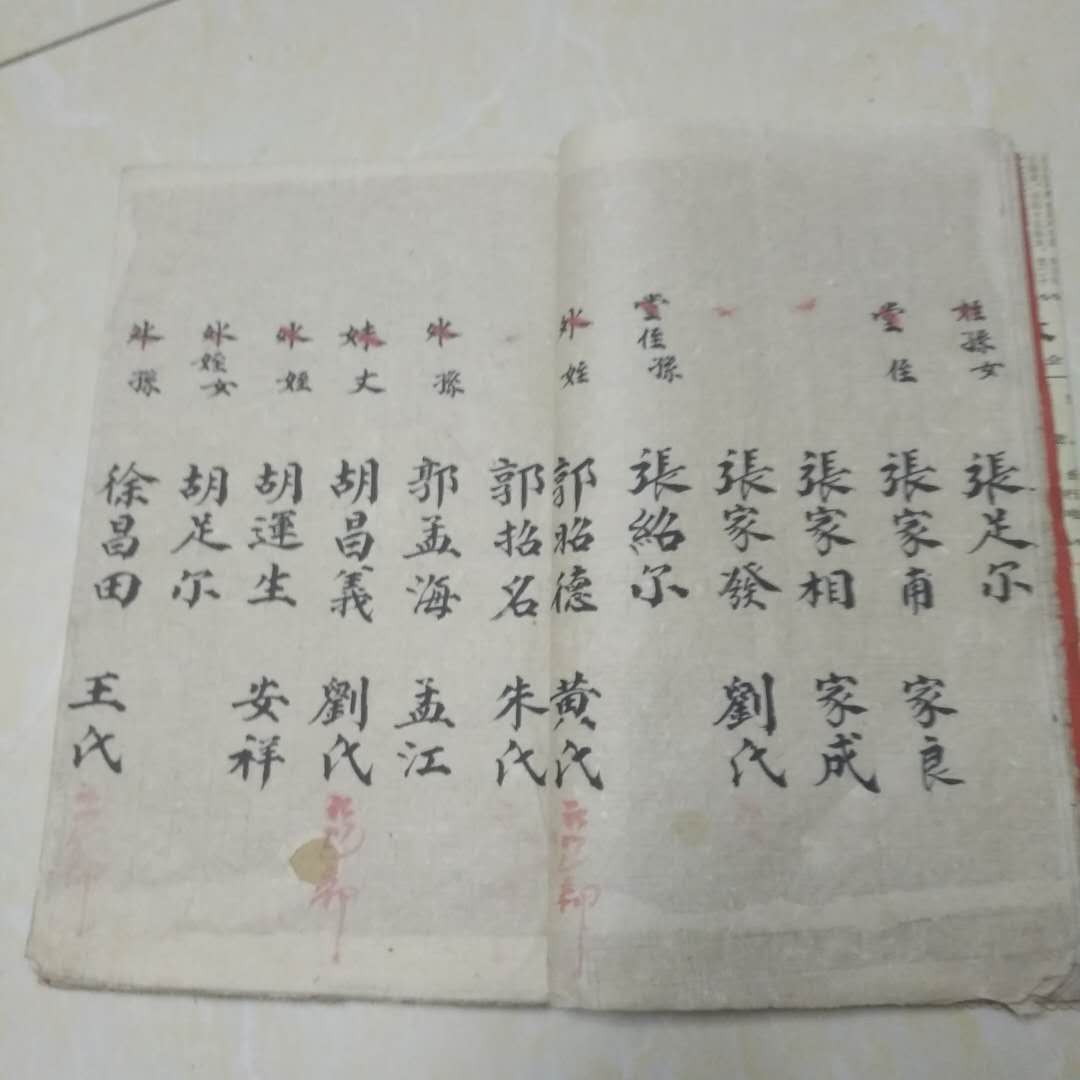 姪孫女 張足尔
堂侄 張家甫 家良
張家相 家成
張家發 劉氏
堂侄孫 張紹尔
外姪 郭昭德 黄氏
郭招名 朱氏
外孫 郭孟海 孟江
妹丈 胡昌義 劉氏
外姪 胡運生 安祥
外姪女 胡足尔
外孫 徐昌田 王氏